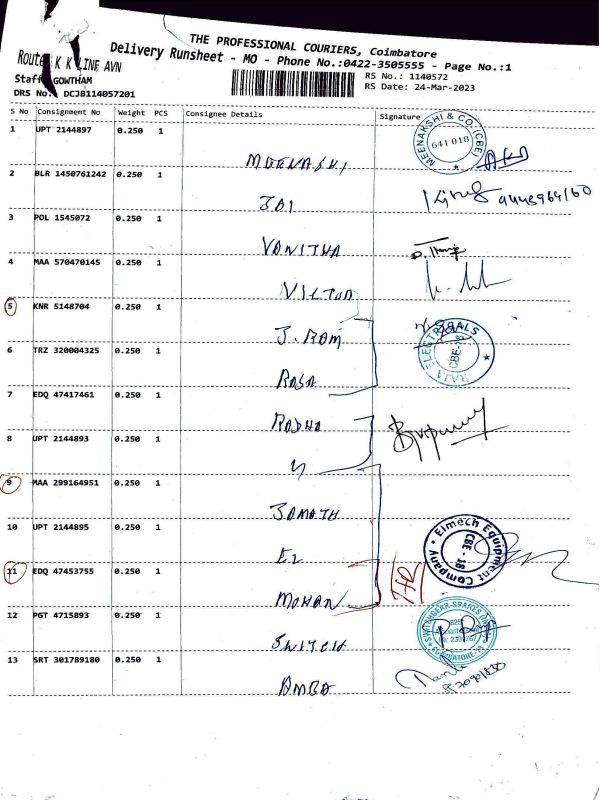 THE PROFESSIONAL COURIERS, Coimbatore
Delivery Runsheet - MO - Phone No.:0422-3505555 - Page No.:1
Route K K LINE AVN
Staff GOWTHAM
DRS No: DCJB114057201
RS No.: 1140572
RS Date: 24-Mar-2023
S No Consignment No Weight PCS Consignee Details Signature
1 UPT 2144897 0.250 1 MEENAKSHI
MEENAKSHI & CO.(CBE) 641 018
2 BLR 1450761242 0.250 1 JAI
3 POL 1545072 0.250 1 VANITHA
4 MAA 570470145 0.250 1 VICTOR
5 KNR 5148704 0.250 1 J. RAM
RAJA ELECTRICALS CBE-18
6 TRZ 320004325 0.250 1 RAJA
7 EDQ 47417461 0.250 1 RADHA
8 UPT 2144893 0.250 1 "
9 MAA 299164951 0.250 1
10 UPT 2144895 0.250 1 EL
Elmech Equipment Company CBE - 18
11 EDQ 47453755 0.250 1 MOHAN
12 PGT 4715893 0.250 1 SWITCH
COIMBATORE-18
13 SRT 301789180 0.250 1 AMBA